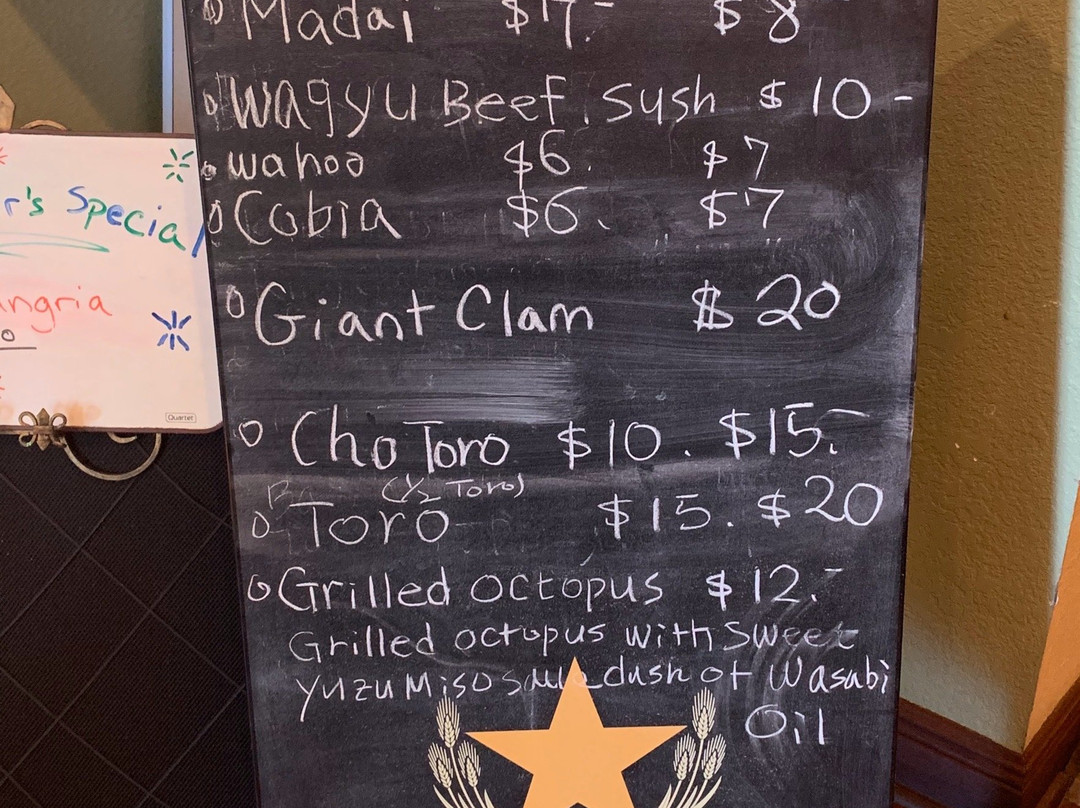 Madai $17.- $8
Wagyu Beef sush $10 -
wahoo $6. $7
Cobia $6. $7
Giant Clam $20
Cho Toro $10. $15.-
(1/2 Toro)
Toro $15. $20
Grilled octopus $12.-
Grilled octopus with sweet
yuzu Miso dush of Wasabi
Oil
r's Special
ngria
0
Quartet